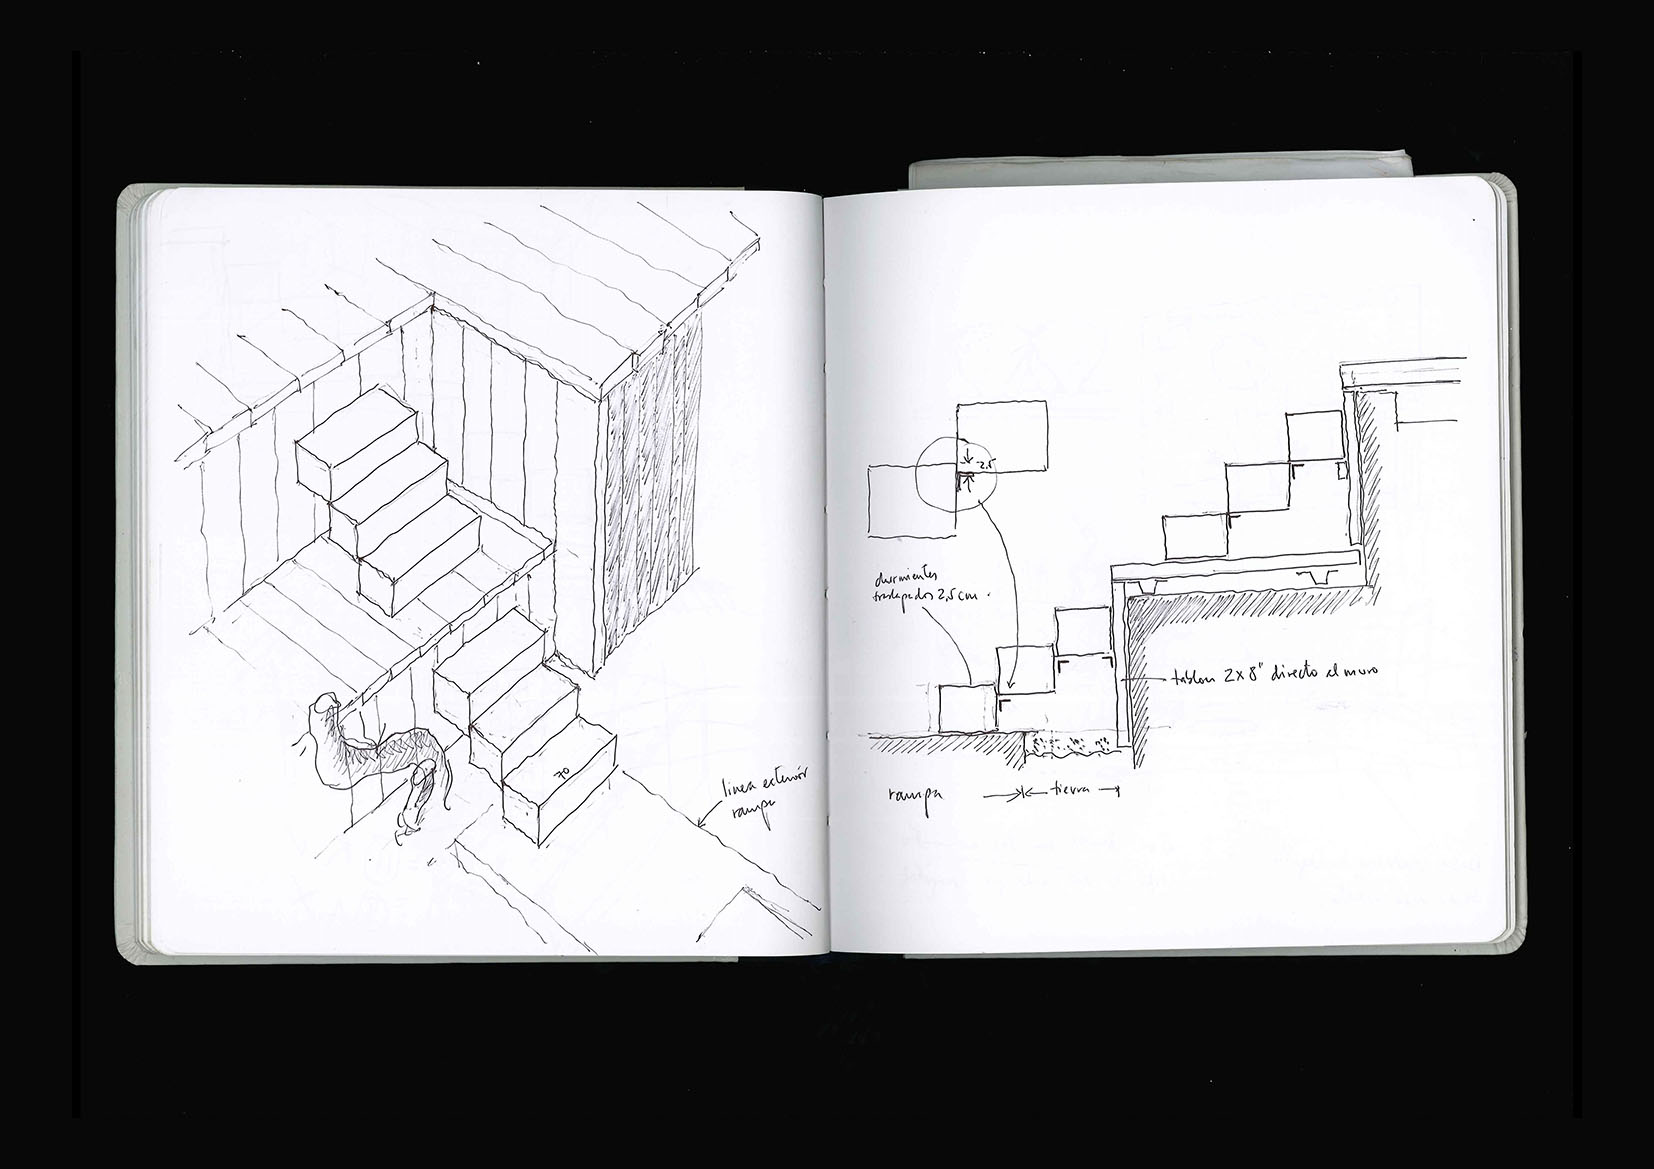 70
linea exterior
rampa
2.5
durmientes
traslapados 2,5 cm.
tablon 2x8" directo al muro
rampa
tierra